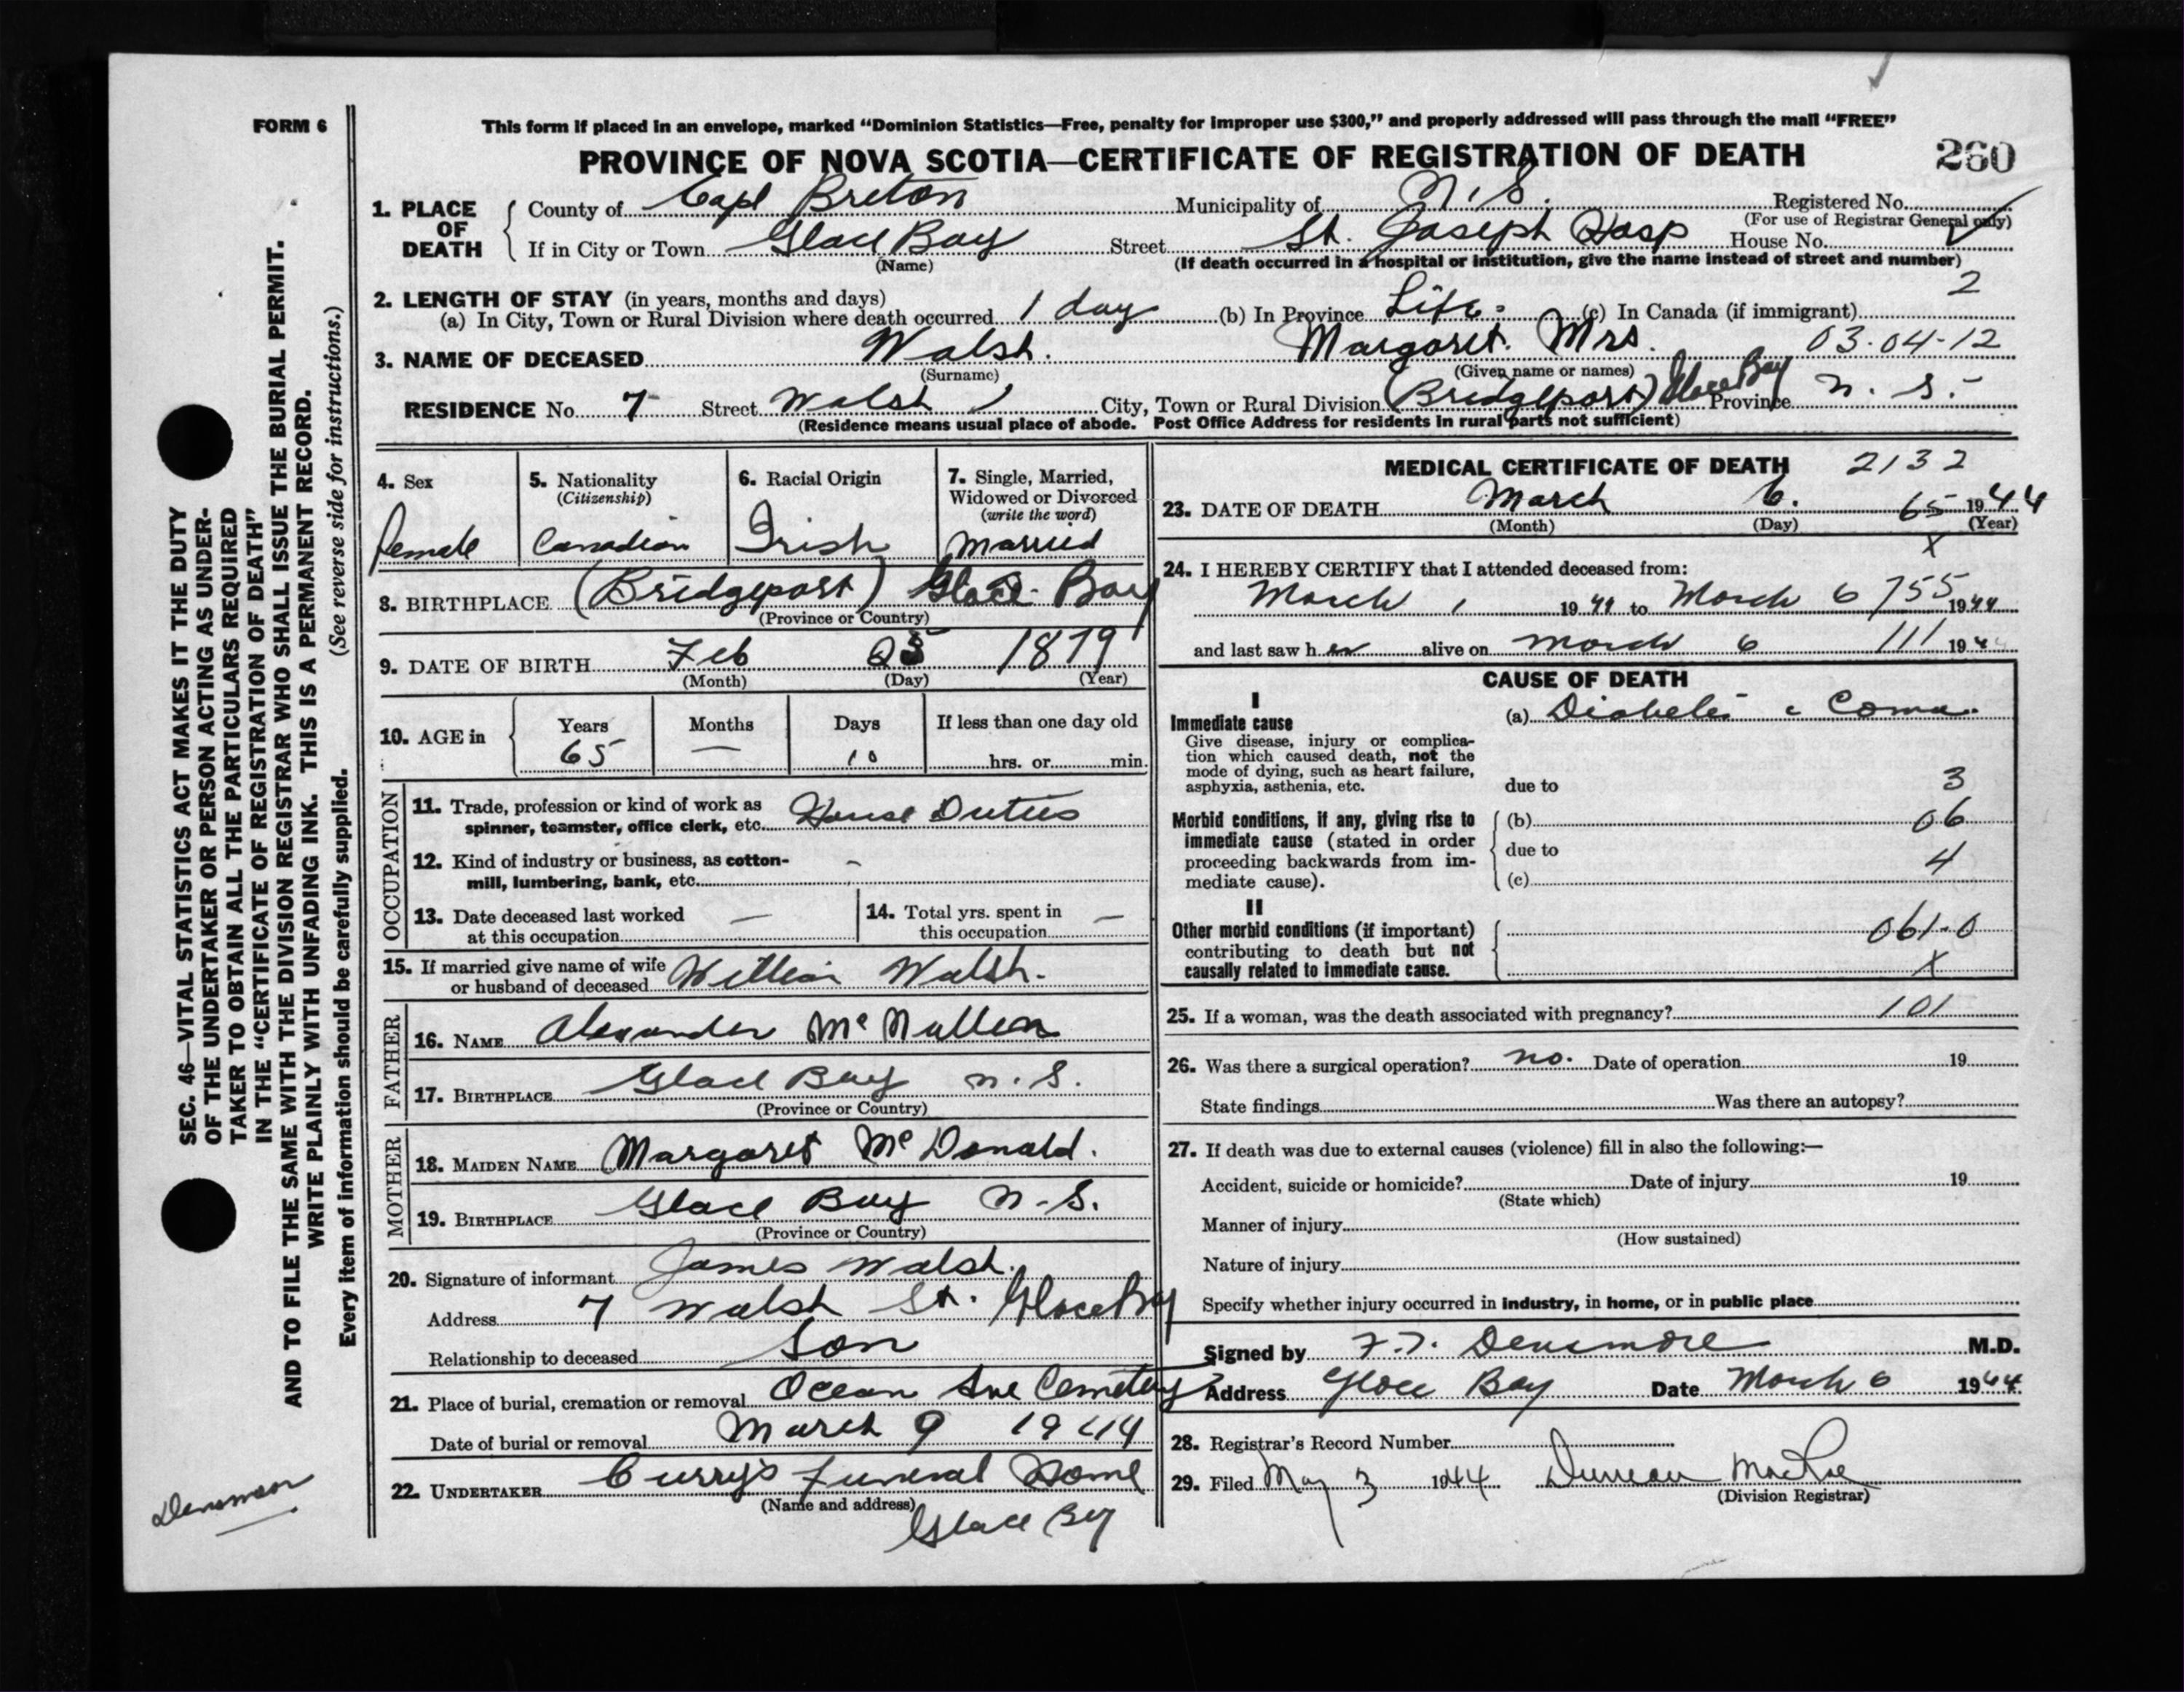 FORM 6
This form if placed in an envelope, marked “Dominion Statistics—Free, penalty for improper use $300,” and properly addressed will pass through the mail “FREE”
PROVINCE OF NOVA SCOTIA—CERTIFICATE OF REGISTRATION OF DEATH 260
1. PLACE OF DEATH County of Cape Breton Municipality of N.S. Registered No.
(For use of Registrar General only)
If in City or Town Glace Bay Street St. Joseph Hosp House No.
(Name) (If death occurred in a hospital or institution, give the name instead of street and number)
2. LENGTH OF STAY (in years, months and days) 2
(a) In City, Town or Rural Division where death occurred 1 day (b) In Province Life. (c) In Canada (if immigrant)
3. NAME OF DECEASED Walsh. Margaret. Mrs. 03-04-12
(Surname) (Given name or names)
RESIDENCE No. 7 Street Walsh City, Town or Rural Division (Bridgeport) Glace Bay Province N. S.
(Residence means usual place of abode. Post Office Address for residents in rural parts not sufficient)
4. Sex
Female
5. Nationality
(Citizenship)
Canadian
6. Racial Origin
Irish
7. Single, Married,
Widowed or Divorced
(write the word)
Married
8. BIRTHPLACE (Bridgeport) Glace Bay
(Province or Country)
9. DATE OF BIRTH Feb 25 1879
(Month) (Day) (Year)
10. AGE in Years Months Days If less than one day old
65 — 10 hrs. or min.
OCCUPATION
11. Trade, profession or kind of work as
spinner, teamster, office clerk, etc. House Duties
12. Kind of industry or business, as cotton- –
mill, lumbering, bank, etc.
13. Date deceased last worked —
at this occupation
14. Total yrs. spent in —
this occupation
15. If married give name of wife
or husband of deceased William Walsh.
FATHER
16. NAME Alexander McMullen
17. BIRTHPLACE Glace Bay N.S.
(Province or Country)
MOTHER
18. MAIDEN NAME Margaret McDonald.
19. BIRTHPLACE Glace Bay N.S.
(Province or Country)
20. Signature of informant James Walsh.
Address 7 Walsh St. Glace Bay
Relationship to deceased Son
21. Place of burial, cremation or removal Ocean Ave Cemetery
Date of burial or removal March 9 1944
22. UNDERTAKER Curry's Funeral Home
(Name and address)
Glace Bay
MEDICAL CERTIFICATE OF DEATH 2132
23. DATE OF DEATH March 6. 65 1944
(Month) (Day) (Year)
X
24. I HEREBY CERTIFY that I attended deceased from:
March 1 1944 to March 6 755 1944
and last saw her alive on March 6 111 194
CAUSE OF DEATH
I
Immediate cause (a) Diabetes c Coma.
Give disease, injury or complica-
tion which caused death, not the
mode of dying, such as heart failure,
asphyxia, asthenia, etc. due to 3
Morbid conditions, if any, giving rise to (b) 06
immediate cause (stated in order due to
proceeding backwards from im- 4
mediate cause). (c)
II
Other morbid conditions (if important) 061.0
contributing to death but not
causally related to immediate cause. X
25. If a woman, was the death associated with pregnancy? 101
26. Was there a surgical operation? no. Date of operation 19
State findings Was there an autopsy?
27. If death was due to external causes (violence) fill in also the following:—
Accident, suicide or homicide? Date of injury 19
(State which)
Manner of injury
(How sustained)
Nature of injury
Specify whether injury occurred in industry, in home, or in public place
Signed by F.T. Densmore M.D.
Address Glace Bay Date March 6 1944
28. Registrar's Record Number
29. Filed May 3 1944 Duncan MacRae
(Division Registrar)
SEC. 46—VITAL STATISTICS ACT MAKES IT THE DUTY
OF THE UNDERTAKER OR PERSON ACTING AS UNDER-
TAKER TO OBTAIN ALL THE PARTICULARS REQUIRED
IN THE “CERTIFICATE OF REGISTRATION OF DEATH”
AND TO FILE THE SAME WITH THE DIVISION REGISTRAR WHO SHALL ISSUE THE BURIAL PERMIT.
WRITE PLAINLY WITH UNFADING INK. THIS IS A PERMANENT RECORD.
Every item of information should be carefully supplied. (See reverse side for instructions.)